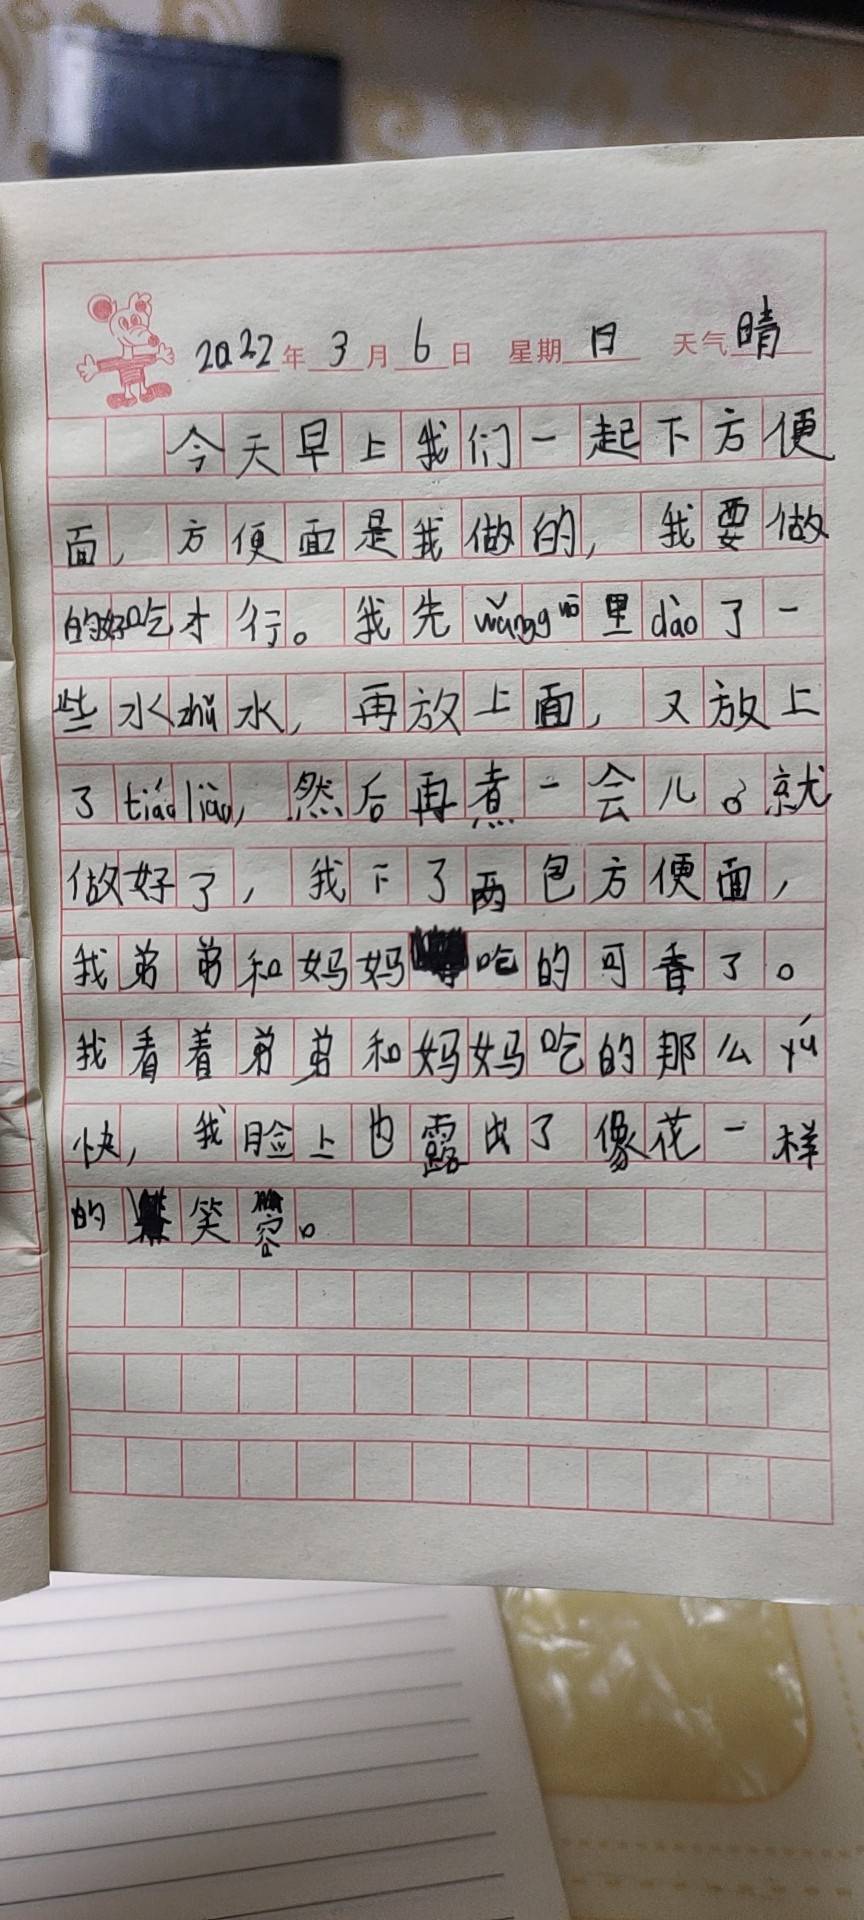 2022年3月6日 星期日 天气晴
今天早上我们一起下方便
面，方便面是我做的，我要做
的好吃才行。我先wǎng 里dào了一
些水zhǔ水，再放上面，又放上
了tiáoliào，然后再煮一会儿。就
做好了，我下了两包方便面，
我弟弟和妈妈吃的可香了。
我看着弟弟和妈妈吃的那么yú
快，我脸上也露出了像花一样
的笑容。